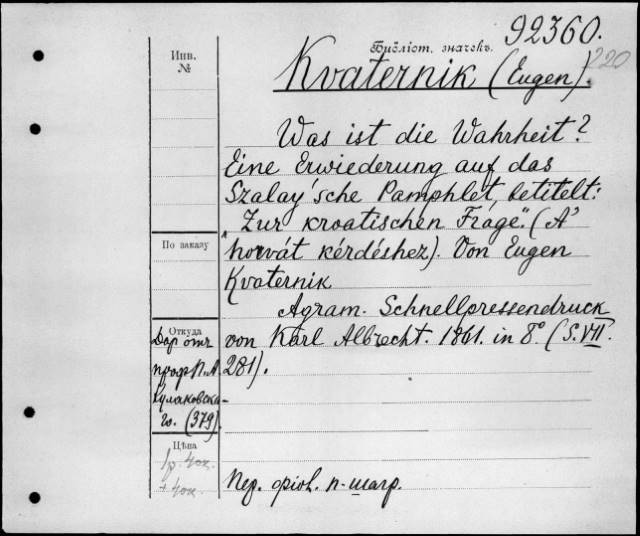 92360.
Библіот. значекъ.
220
Инв.
№
Kvaternik (Eugen).
Was ist die Wahrheit?
Eine Erwiederung auf das
Szalay'sche Pamphlet, betitelt:
„Zur kroatischen Frage". (A'
horvát kérdéshez). Von Eugen
Kvaternik
По заказу
Agram. Schnellpressendruck
von Karl Albrecht. 1861. in 8° (S. VII.
281).
Откуда
Дар отъ
проф П. А.
Кулаковска-
го. (379).
Цѣна
1р. 40к.
+ 40к.
Пер.